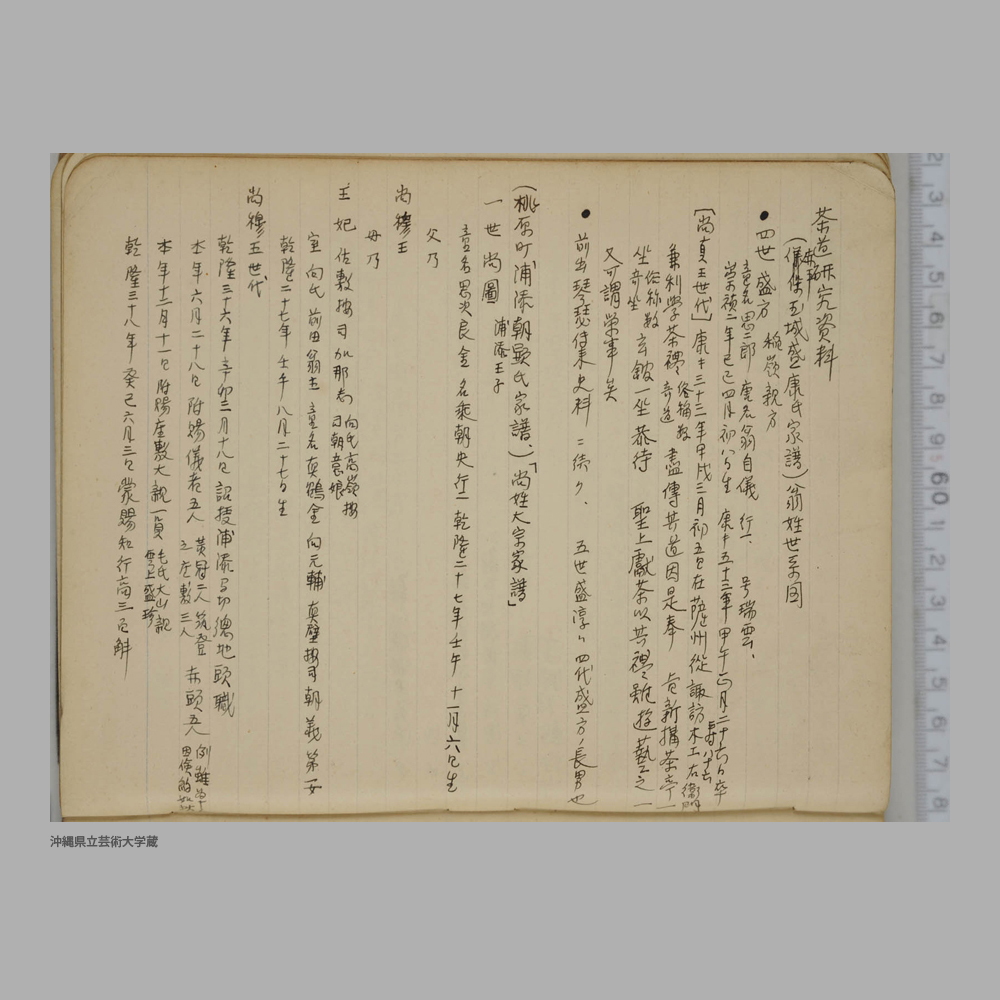 茶道研究資料
(儀保 玉城盛康氏家譜)翁姓世系図
赤平
●四世 盛方 稲嶺親方
童名思二郎 唐名翁自儀 行一、号瑞雲、
崇禎二年己巳四月初八日生 康熙五十三年甲午正月二十六日卒
寿八十六
[尚貞王世代]康熙三十三年甲戌三月初五日在薩州從諏訪木工右衛門
兼利学茶禮 俗稱数奇道 盡傳其道因是奉 旨新搆茶亭一
坐 俗称数奇坐 玄館一坐恭待 聖上獻茶以其禮雖遊藝之一
又可謂榮事矣
● 前出琴瑟侍業史料ニ続ク、 五世盛淳ハ四代盛方ノ長男也
(桃原町浦添朝顕氏家譜、)「尚姓大宗家譜」
一世尚圖 浦添王子
童名思次良金 名乘朝央行一 乾隆二十七年壬午十一月六日生
父乃
尚穆王
母乃
王妃 佐敷按司加那志 向氏高嶺按司朝意娘
室 向氏 前田翁主 童名真鶴金 向元輔真壁按司朝義第一女
乾隆二十七年壬午八月二十七日生
尚穆王世代
乾隆三十六年辛卯三月十八日 詔授浦添間切總地頭職
本年六月二十八日附賜儀者五人 黄冠二人筑登之座敷三人 赤頭五人
本年十二月十一日附賜座敷大親一員 毛氏大山親雲上盛珍
乾隆三十八年癸巳六月三日蒙賜知行高三百斛